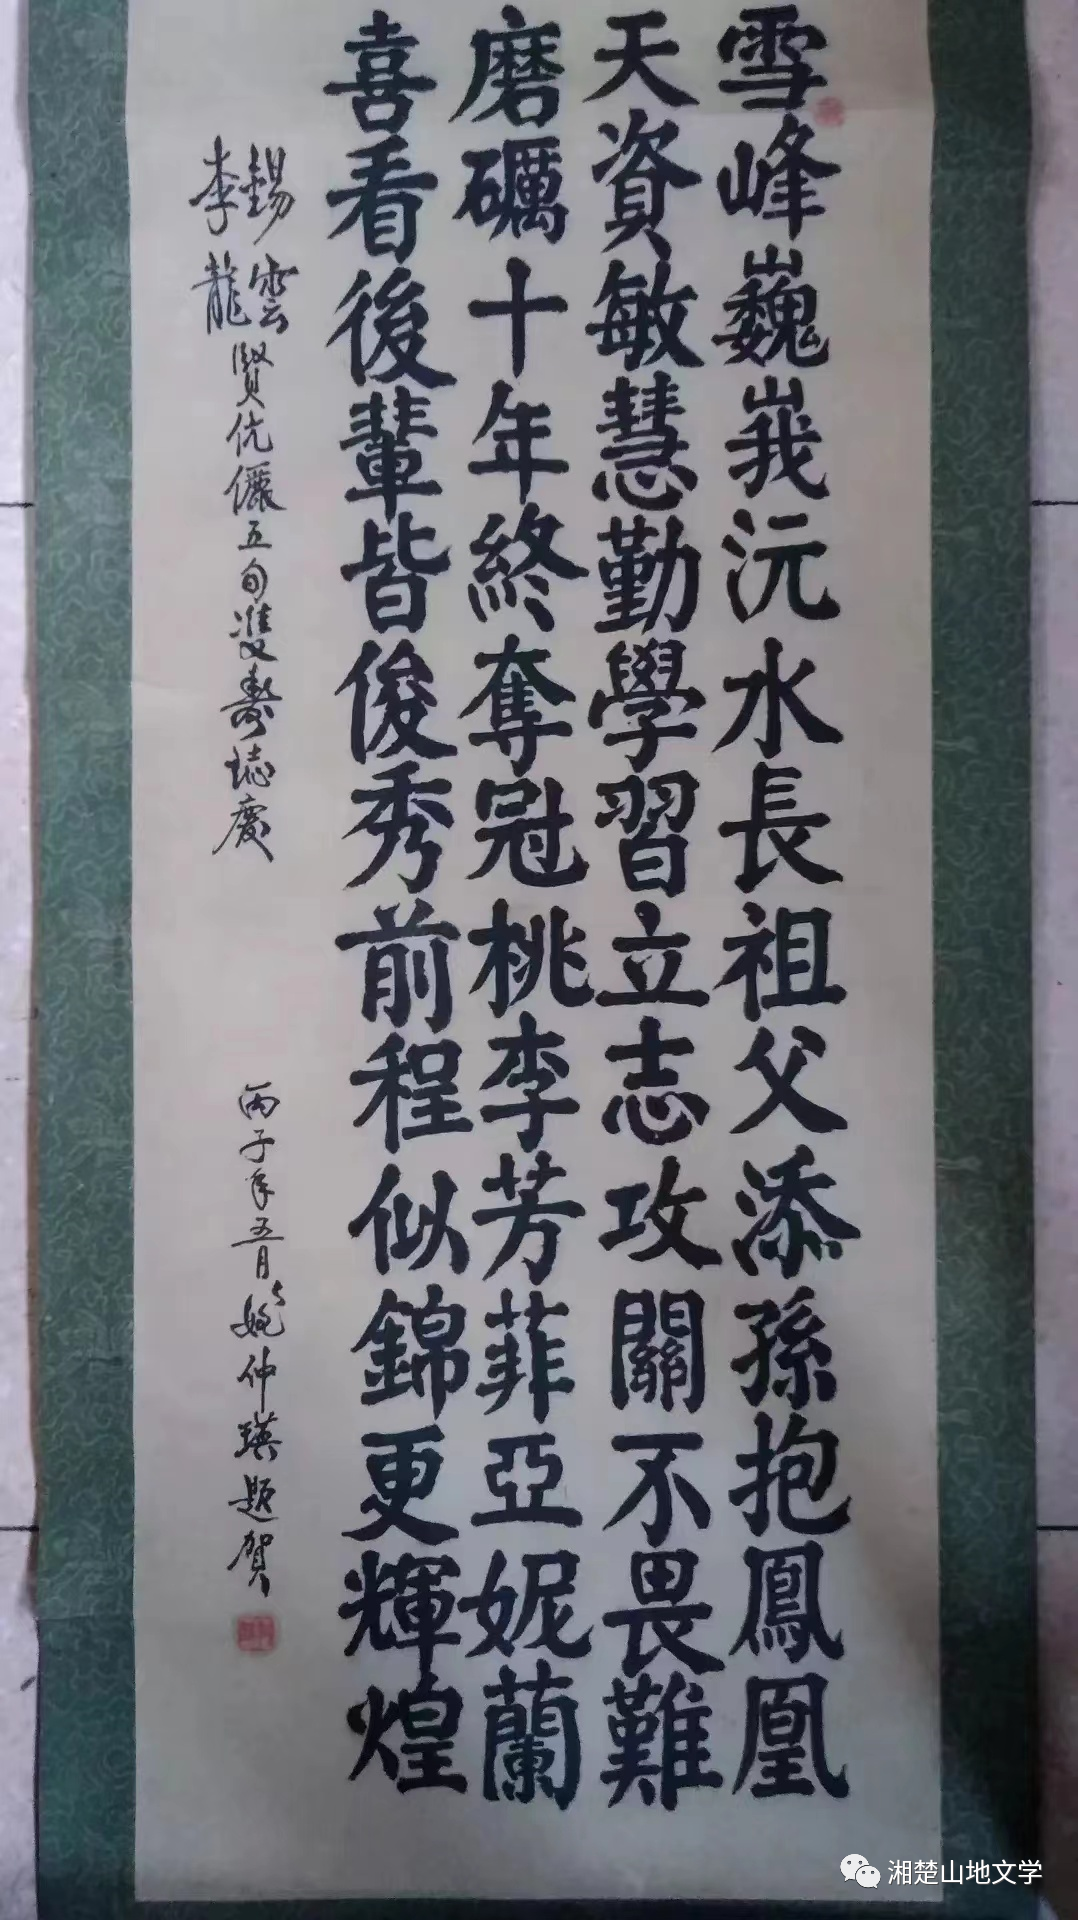 雪峰巍峩沅水長祖父添孫抱鳳凰
天資敏慧勤學習立志攻關不畏難
磨礪十年終奪冠桃李芳菲亞妮蘭
喜看後輩皆俊秀前程似錦更輝煌
錫雲
李龍
賢伉儷五旬雙壽誌慶
丙子年五月姚仲瑛題賀
湘楚山地文学